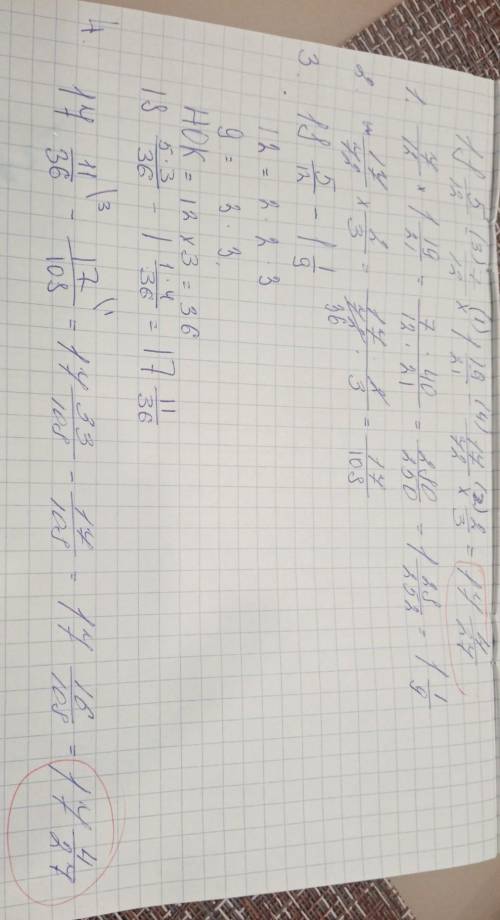 18 5/12 (3)- 7/12 (1)× 1 19/21 (4)- 17/72 (2)× 2/3 = 17 4/27
1. 7/12 × 1 19/21 = 7 · 40/12 · 21 = 280/250 = 1 28/252 = 1 1/9
2. 17/72 × 2/3 = 17 · 2/72 · 3 = 17/108
36
3. 18 5/12 - 1 1/9
12 = 2 · 2 · 3
9 = 3 · 3.
НОК = 12 × 3 = 36
18 5·3/36 - 1 1·4/36 = 17 11/36
4. 17 11/36 \3 - 17/108 \1 = 17 33/108 - 17/108 = 17 16/108 = 17 4/27